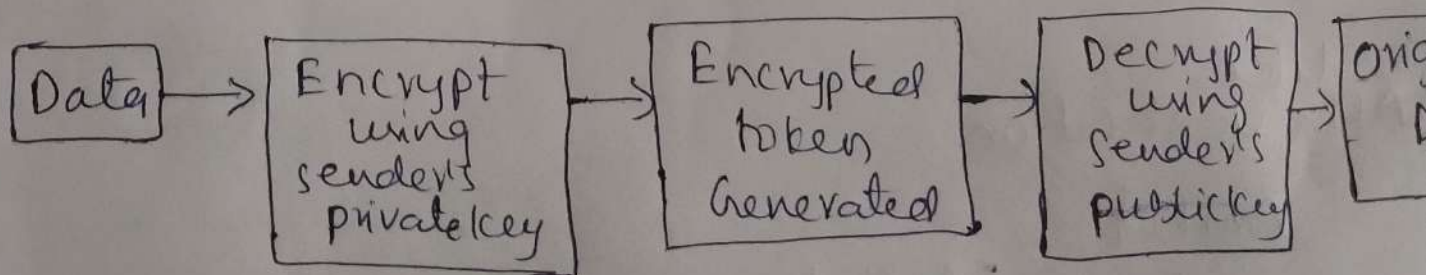 Data
Encrypt
using
sender's
private key
Encrypted
token
Generated
Decrypt
using
sender's
public key